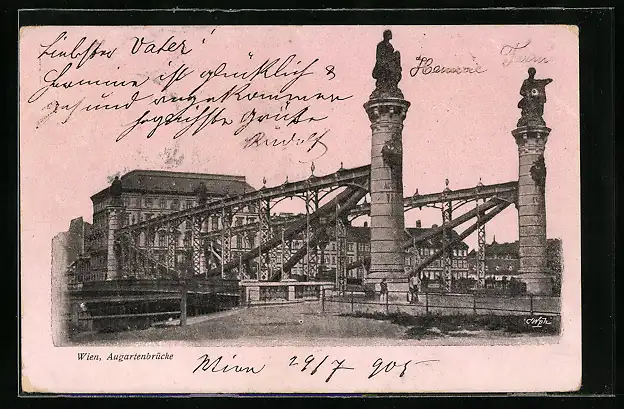 Liebster Vater!
Hermine ist glücklich &
gesund angekommen
herzlichste Grüße
Rudolf
Hermine
Wien, Augartenbrücke
Wien 29/7 905